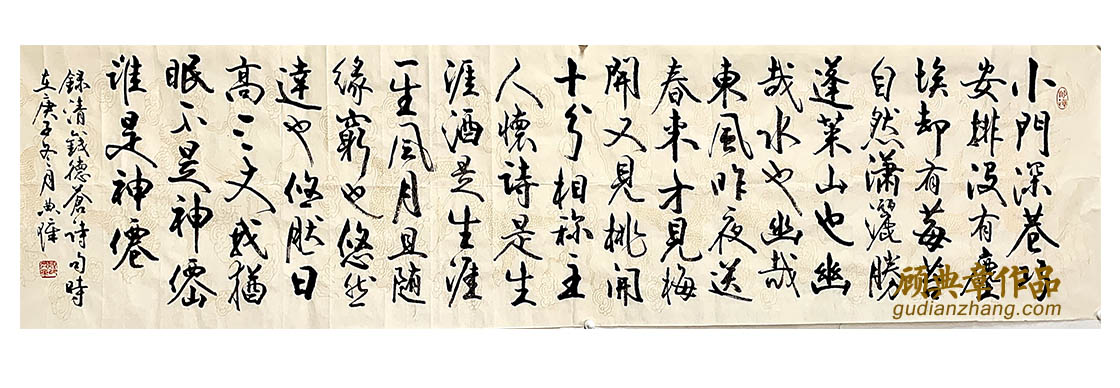 小門深巷巧
安排沒有塵
埃却有莓苔
自然瀟灑勝
蓬萊山也幽
哉水也幽哉
東風昨夜送
春來才見梅
開又見桃開
十分相称主
人懷詩是生
涯酒是生涯
一生風月且随
緣窮也悠然
達也悠然日
高三丈我猶
眠不是神僊
誰是神僊
錄清錢德蒼詩句時
在庚子冬月典璋
顾典章作品
gudianzhang.com